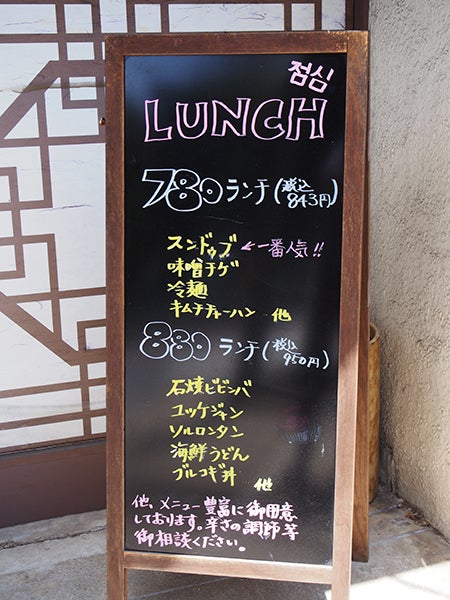 점심
LUNCH
780 ランチ(税込843円)
スンドゥブ ←一番人気!!
味噌チゲ
冷麺
キムチチャーハン 他
880 ランチ(税込950円)
石焼ビビンバ
ユッケジャン
ソルロンタン
海鮮うどん
プルコギ丼
他
他、メニュー豊富に御用意
しております。辛さの調師等
御相談ください。